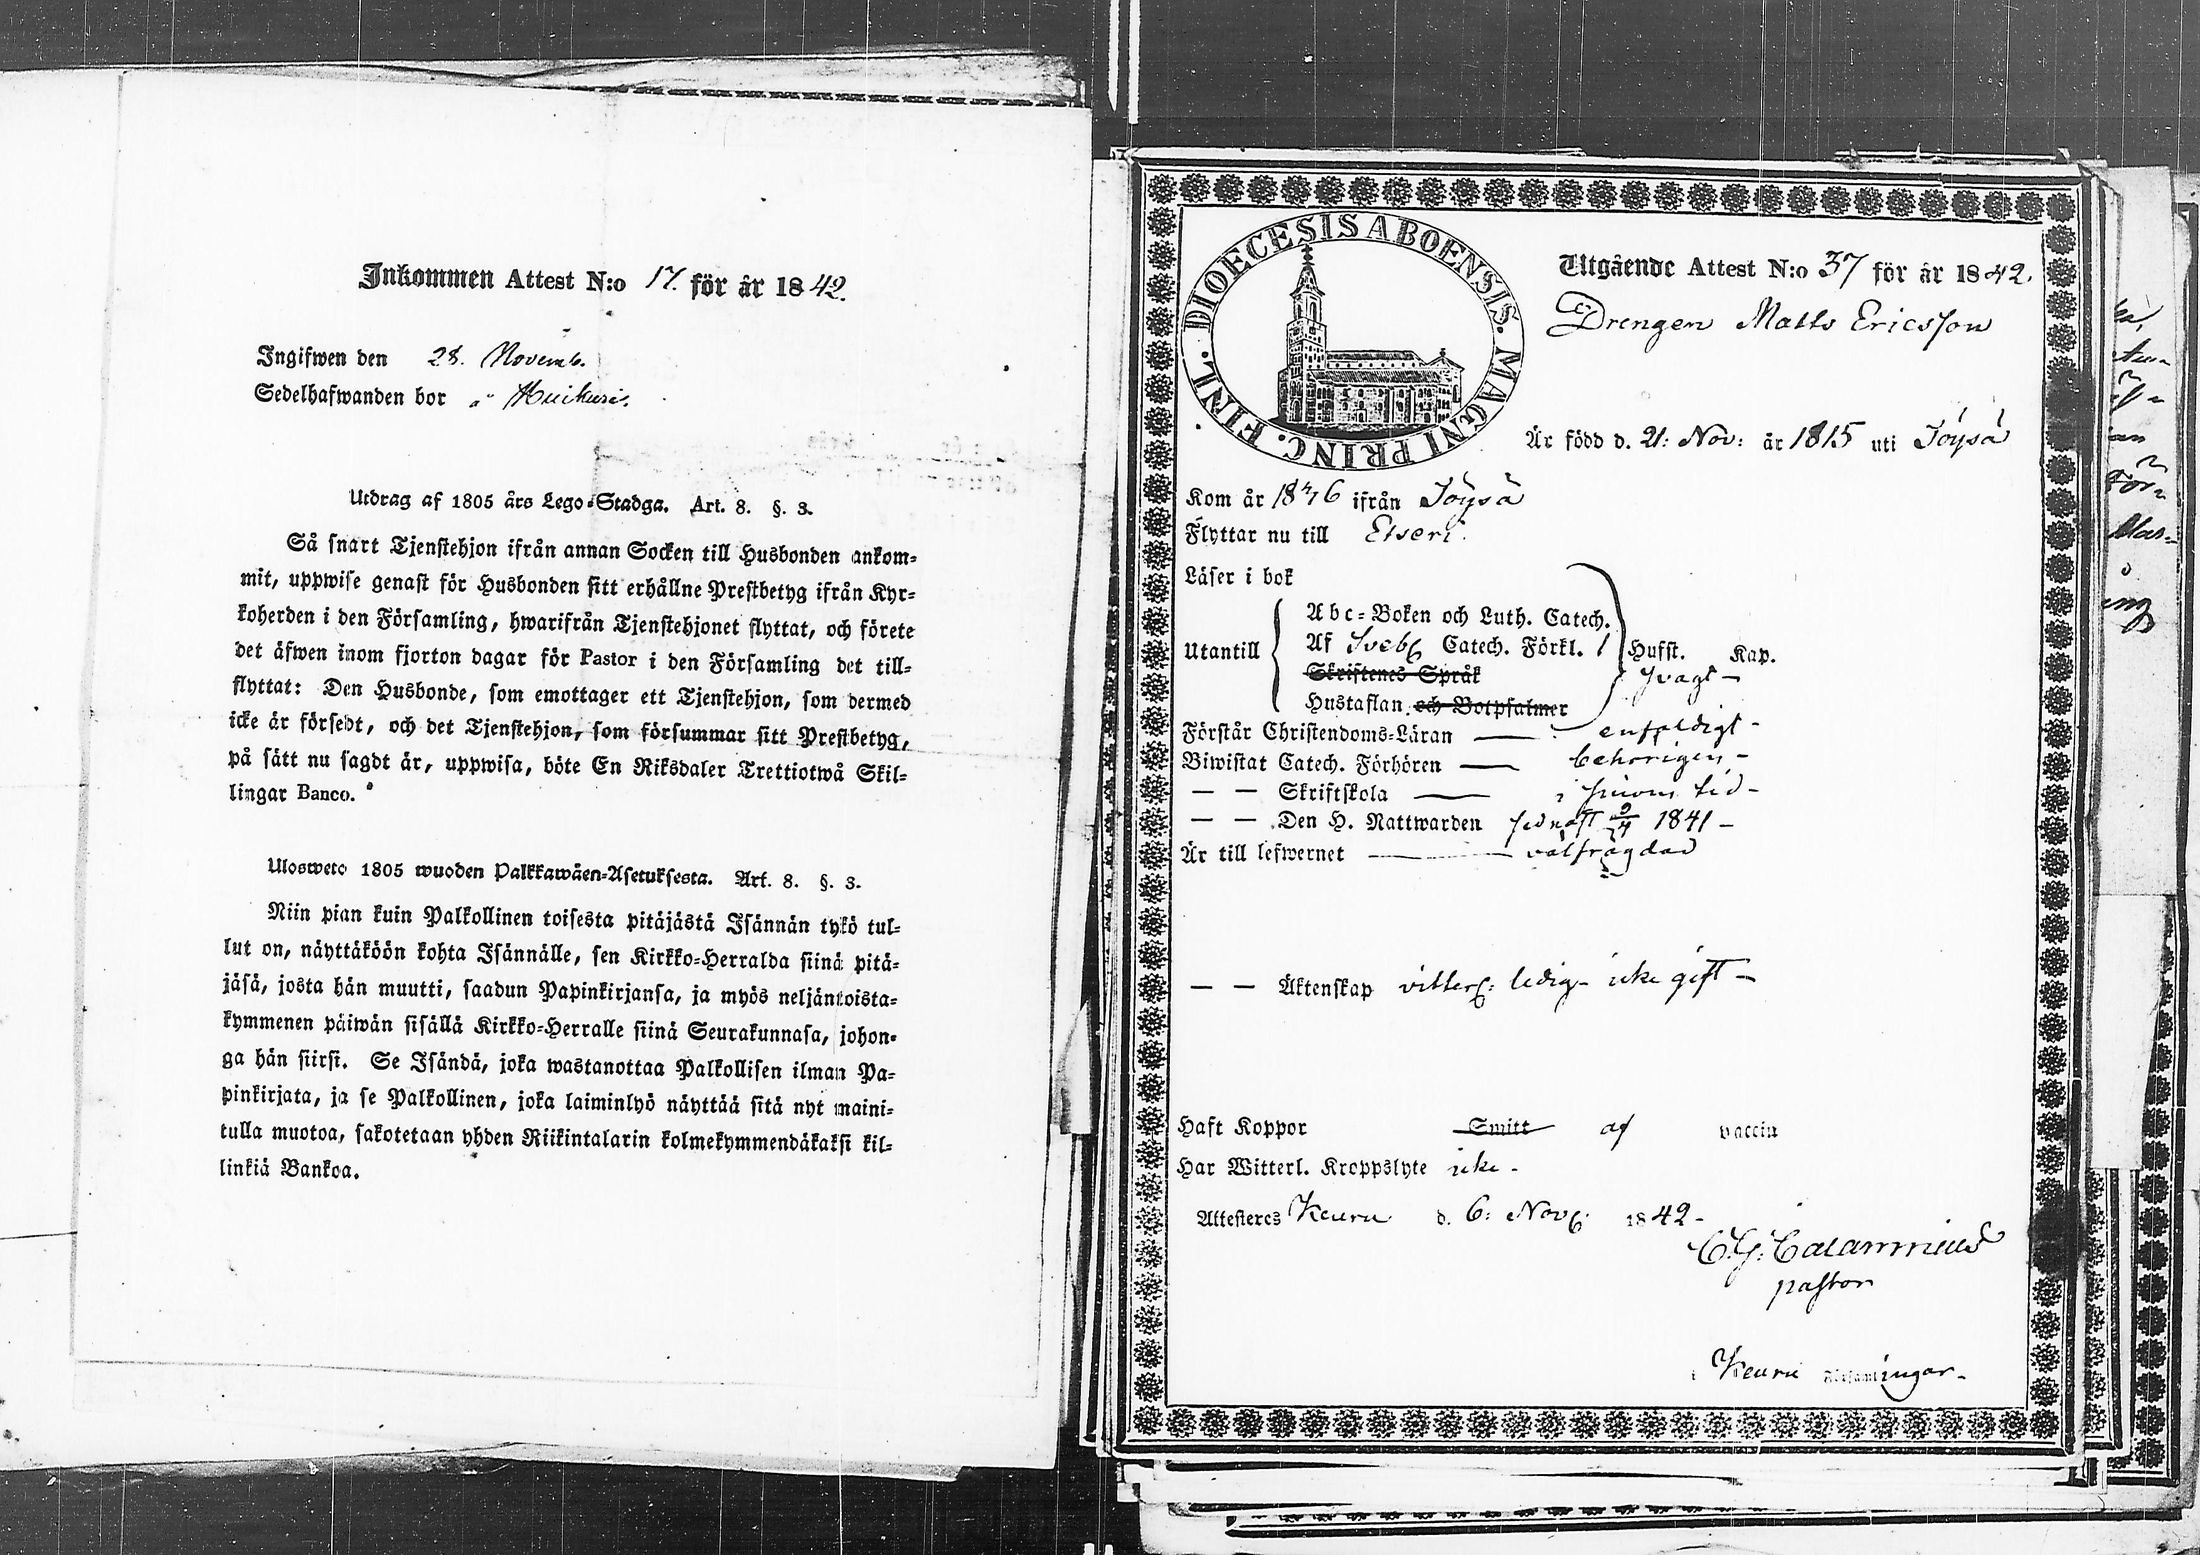 Inkommen Attest N:o 17. för år 1842.
Ingifwen den 28. Novemb.
Sedelhafwanden bor å
Utdrag af 1805 års Lego-Stadga. Art. 8. §. 3.
Så snart Tjenstehjon ifrån annan Socken till Husbonden ankom-
mit, uppwise genast för Husbonden sitt erhållne Prestbetyg ifrån Kyr-
koherden i den Församling, hwarifrån Tjenstehjonet flyttat, och förete
det äfwen inom fjorton dagar för Pastor i den Församling det till-
flyttat: Den Husbonde, som emottager ett Tjenstehjon, som dermed
icke är försedt, och det Tjenstehjon, som försummar sitt Prestbetyg,
på sätt nu sagdt är, uppwisa, böte En Riksdaler Trettiotwå Skil-
lingar Banco.
Ulosweto 1805 wuoden Palkkawäen-Asetuksesta. Art. 8. §. 3.
Niin pian kuin Palkollinen toisesta pitäjästä Isännän tykö tul-
lut on, näyttäköön kohta Isännälle, sen Kirkko-Herralda siinä pitä-
jäsä, josta hän muutti, saadun Papinkirjansa, ja myös neljäntoista-
kymmenen päiwän sisällä Kirkko-Herralle siinä Seurakunnasa, johon-
ga hän siirsi. Se Isändä, joka wastanottaa Palkollisen ilman Pa-
pinkirjata, ja se Palkollinen, joka laiminlyö näyttää sitä nyt maini-
tulla muotoa, sakotetaan yhden Riikintalarin kolmekymmendäkaksi kil-
linkiä Bankoa.
DIOECESIS ABOENSIS. MAGNI PRINC. FINL.
Utgående Attest N:o 37 för år 1842.
Drengen Matts Ericsson
Är född d. 21: Nov: år 1815 uti Töysä
Kom år ifrån Töysä
Flyttar nu till Etseri
Läser i bok
Utantill
Abc-Boken och Luth. Catech.
Af Sveb. Catech. Förkl.
Skriftenes Språk
Hustaflan och Botpsalmer
Husst. Kap.
svagt -
Förstår Christendoms-Läran — enfaldigt -
Biwistat Catech. Förhören — behörigen -
— — Skriftskola — i sinom tid -
— — Den H. Nattwarden sednast 9/4 1841 -
Är till lefwernet — välfrägdad
— — Äktenskap vitterl: ledig - icke gift -
Haft Koppor Smitt af vaccin
Har Witterl. Kroppslyte icke -
Attesteres Keuru d. 6: Nov: 1842 -
C. G. Calamnius
pastor
i Keuru Församlingar -